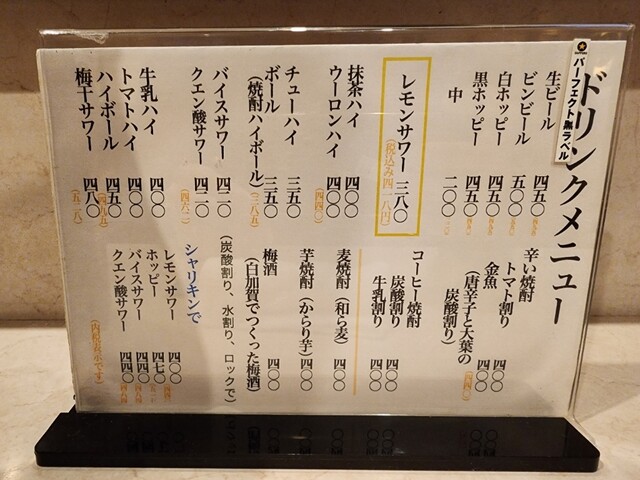 ドリンクメニュー
パーフェクト黒ラベル
生ビール 四五〇
ビンビール 五〇〇
白ホッピー 四五〇
黒ホッピー 四五〇
中 二〇〇
レモンサワー 三八〇
(税込み四一八円)
抹茶ハイ 四〇〇
ウーロンハイ 四〇〇
(四四〇)
チューハイ 三五〇
ボール 三五〇
(焼酎ハイボール)
(三八五)
バイスサワー 四二〇
クエン酸サワー 四二〇
(四六二)
牛乳ハイ 四〇〇
トマトハイ 四〇〇
ハイボール 四五〇
梅干サワー 四八〇
(五二八)
辛い焼酎
トマト割り 四〇〇
金魚 四〇〇
(唐辛子と大葉の
炭酸割り)
(四四〇)
コーヒー焼酎
炭酸割り 四〇〇
牛乳割り 四〇〇
麦焼酎(和ら麦) 四〇〇
芋焼酎(からり芋) 四〇〇
梅酒 四〇〇
(白加賀でつくった梅酒)
(炭酸割り、水割り、ロックで)
シャリキンで
レモンサワー 四〇〇
ホッピー 四七〇
バイスサワー 四四〇
クエン酸サワー 四四〇
(内税表示です)